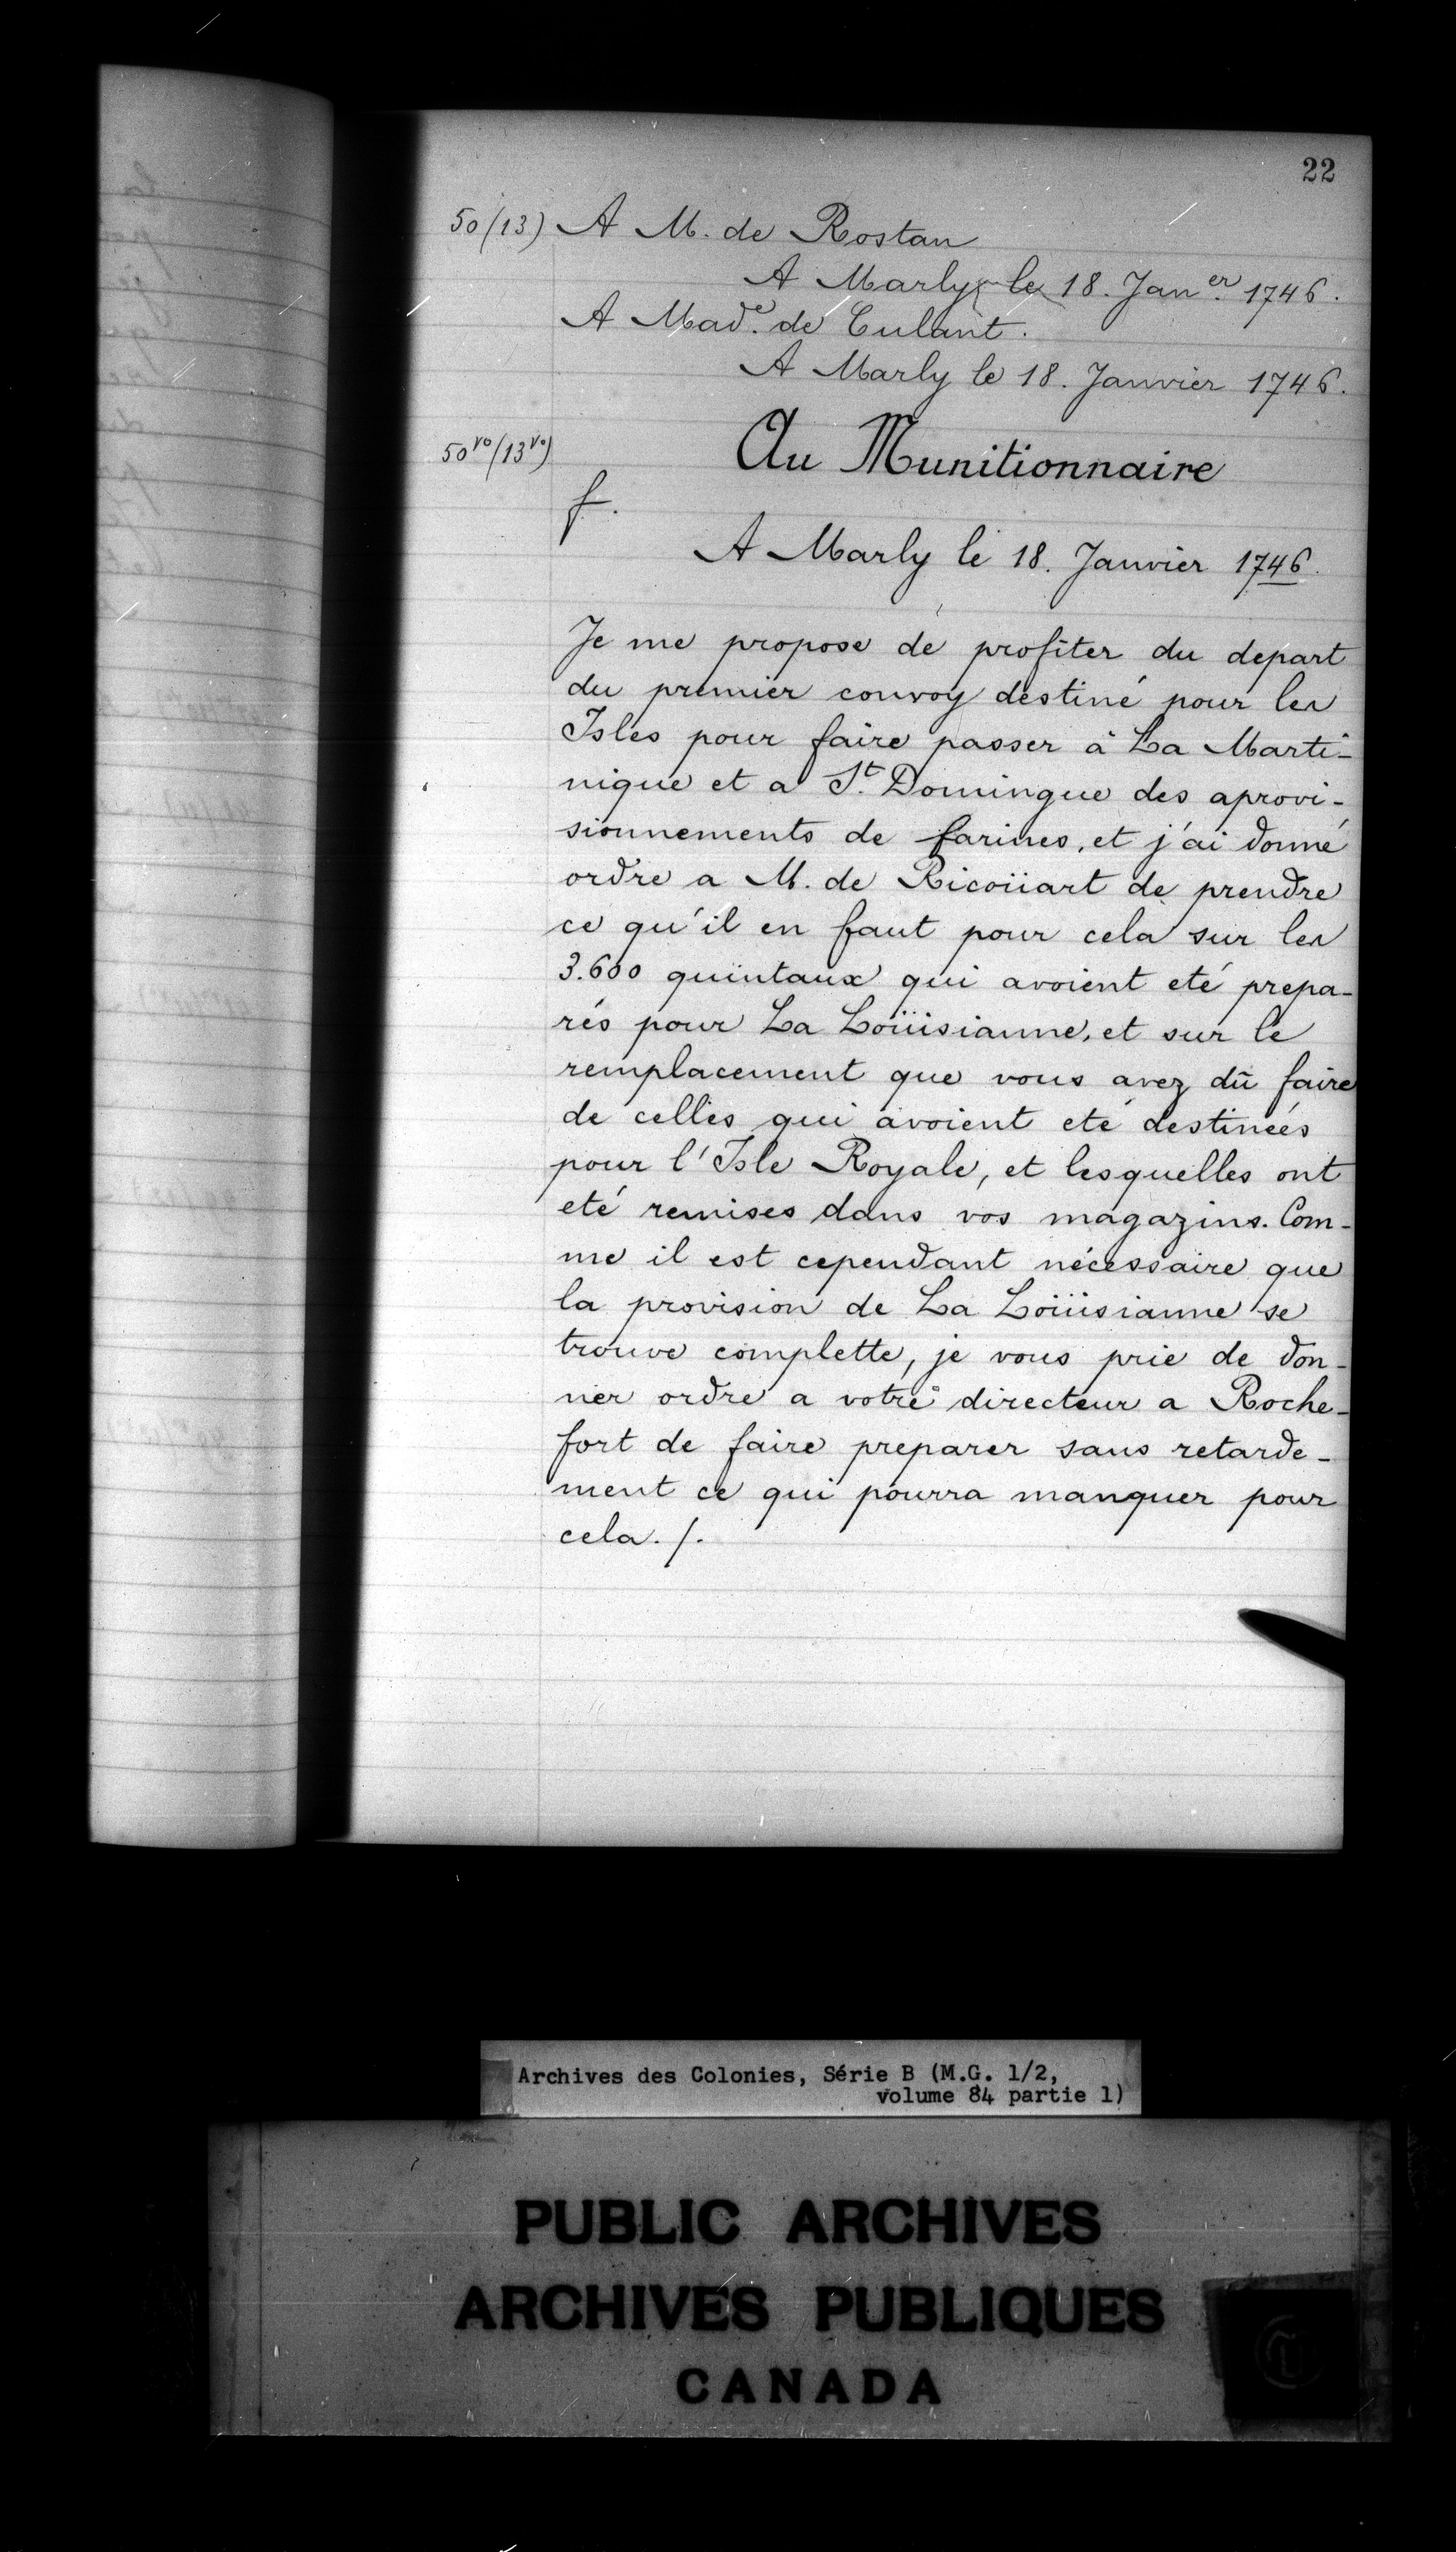 22
50 (13) A M. de Rostan
A Marly le 18. Jan.er 1746.
A Made. de Culant.
A Marly le 18. Janvier 1746.
50vo (13vo)
Au Munitionnaire
f.
A Marly le 18. Janvier 1746.
Je me propose de profiter du depart
du premier convoy destiné pour les
Isles pour faire passer à La Marti-
nique et a St. Domingue des aprovi-
sionnements de farines, et j'ai donné
ordre a M. de Ricoüart de prendre
ce qu'il en faut pour cela sur les
3.600 quintaux qui avoient eté prepa-
rés pour La Loüisianne, et sur le
remplacement que vous avez dû faire
de celles qui avoient eté destinées
pour l'Isle Royale, et lesquelles ont
eté remises dans vos magazins. Com-
me il est cependant nécessaire que
la provision de La Loüisianne se
trouve complette, je vous prie de don-
ner ordre a votre directeur a Roche-
fort de faire preparer sans retarde-
ment ce qui pourra manquer pour
cela. /.
Archives des Colonies, Série B (M.G. 1/2,
volume 84 partie 1)
PUBLIC ARCHIVES
ARCHIVES PUBLIQUES
CANADA